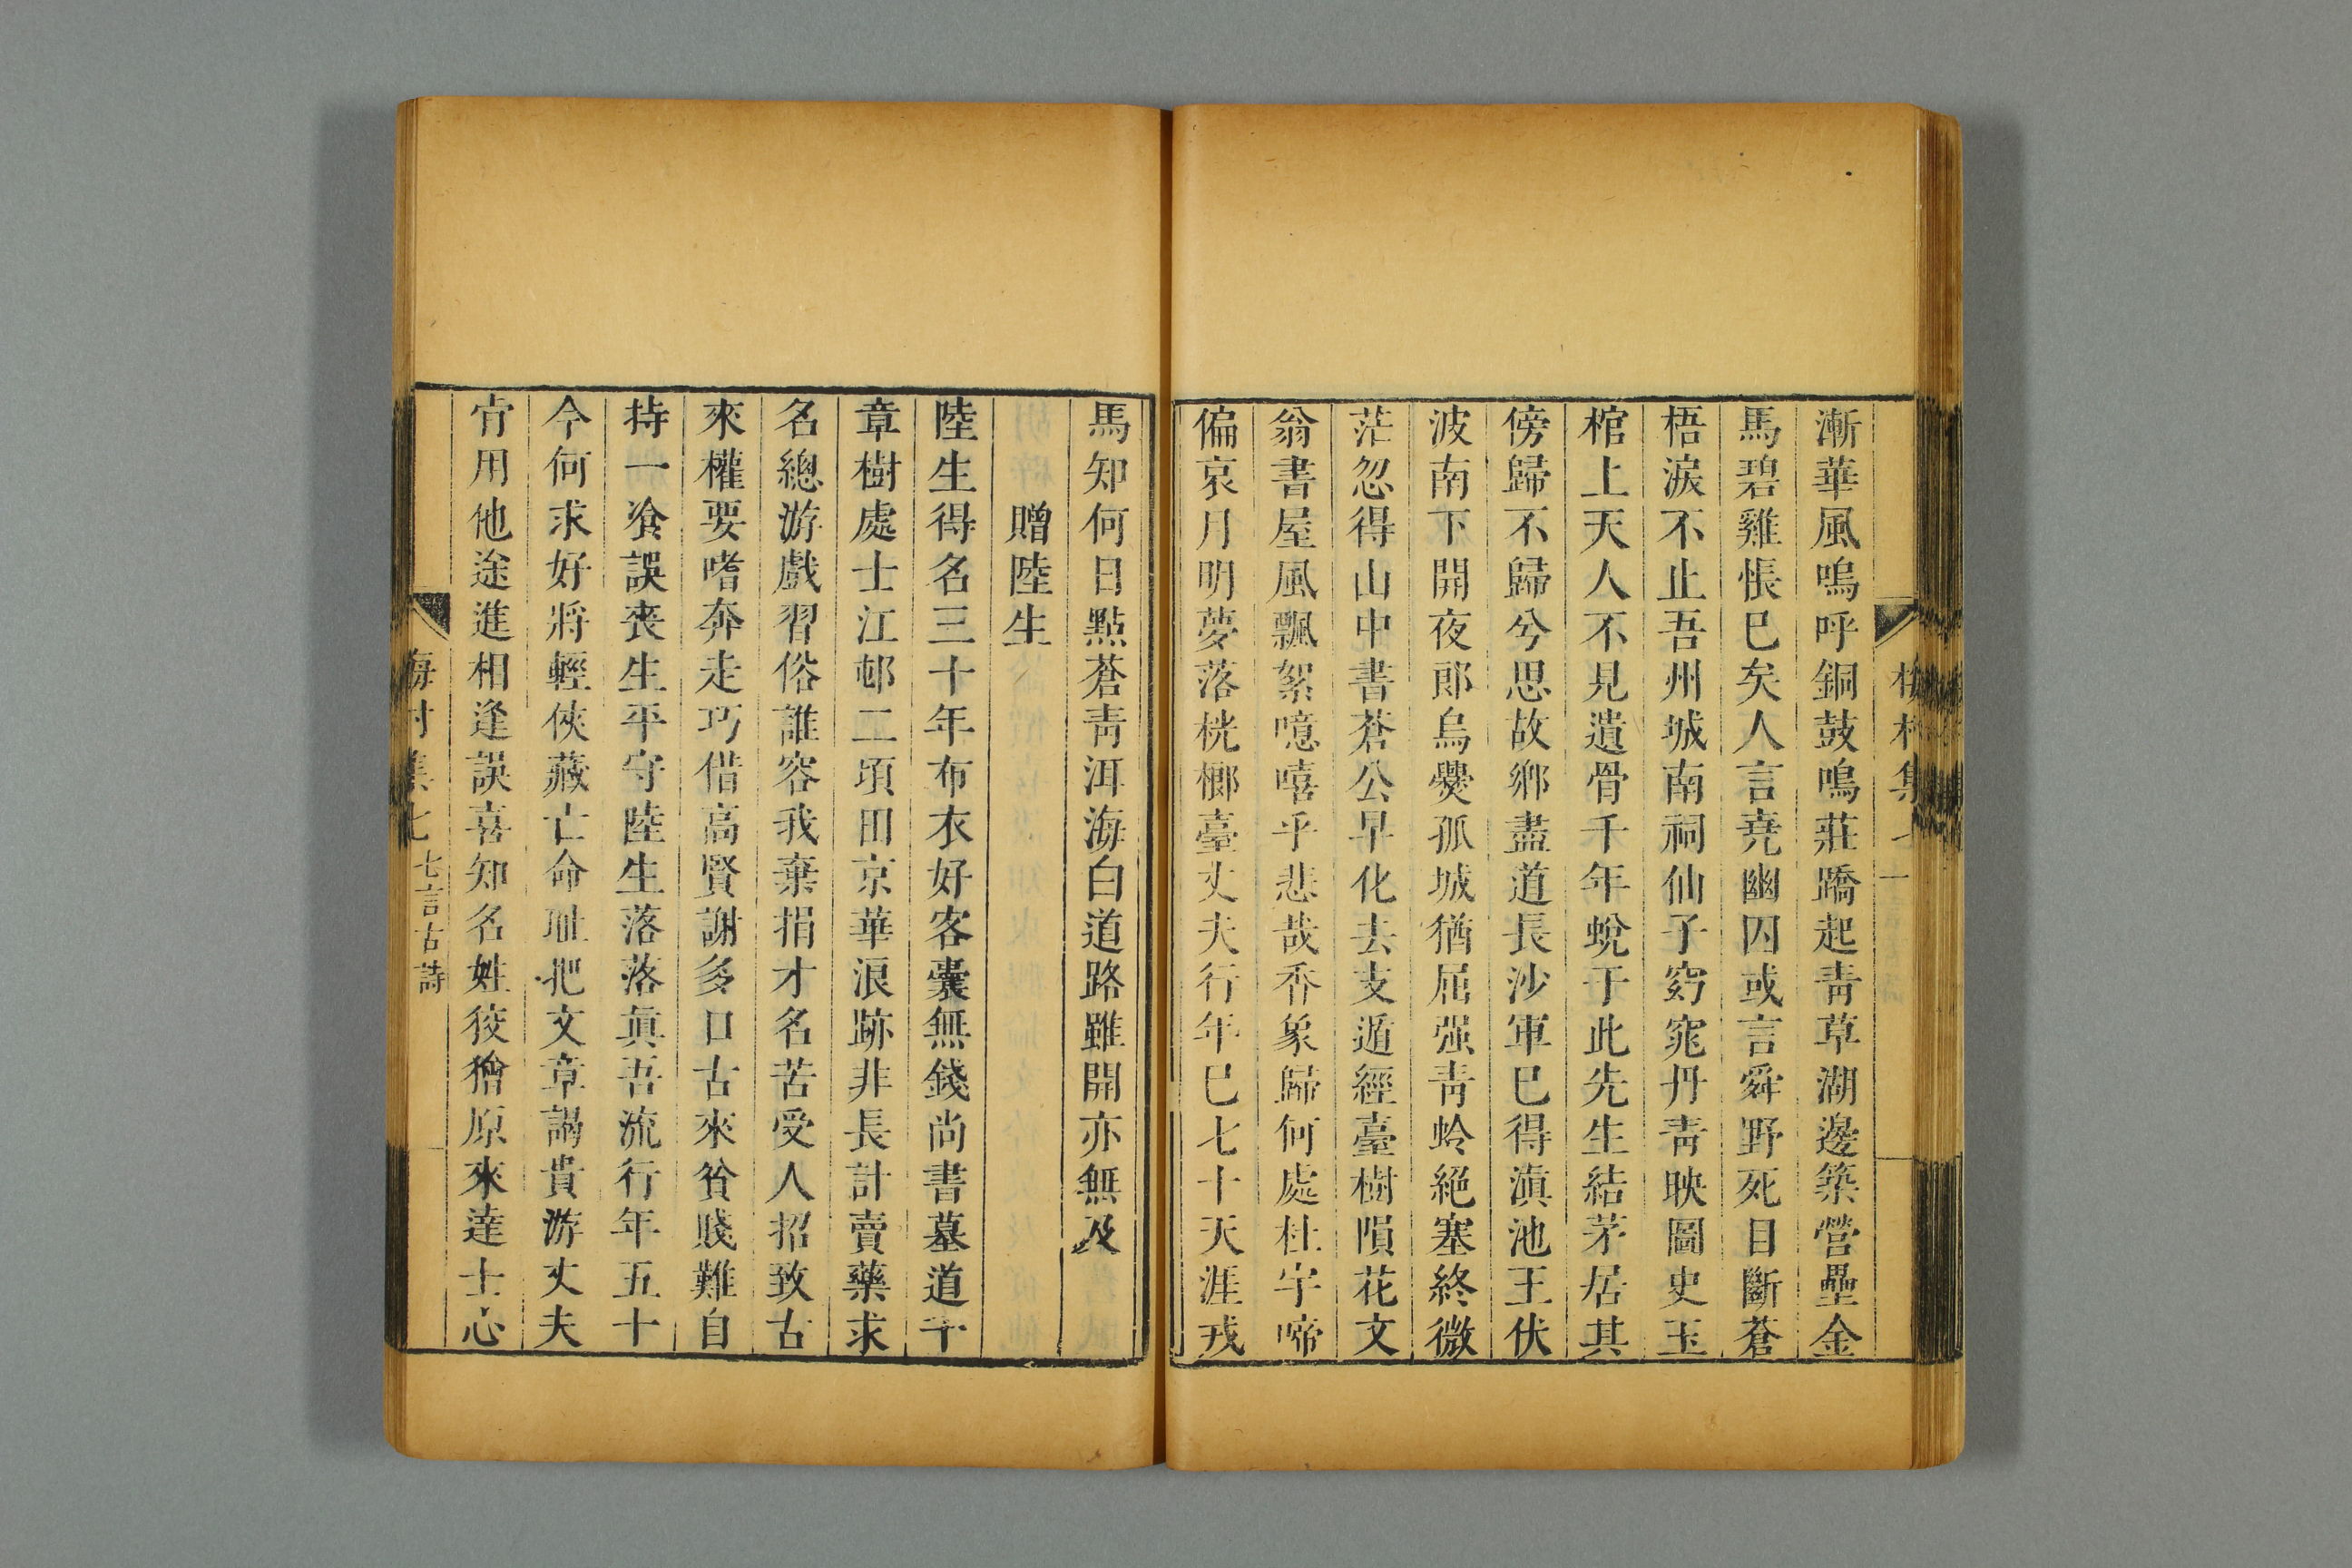 漸華風嗚呼銅鼓鳴莊蹻起青草湖邊築營壘金
馬碧雞悵已矣人言堯幽囚或言舜野死目斷蒼
梧淚不止吾州城南祠仙子窈窕丹青映圖史玉
棺上天人不見遺骨千年蛻于此先生結茅居其
傍歸不歸兮思故鄉盡道長沙軍已得滇池王伏
波南下開夜郎烏爨孤城猶屈强青蛉絕塞終微
茫忽得山中書蒼公早化去支遁經臺樹隕花文
翁書屋風飄絮噫嘻乎悲哉香象歸何處杜宇啼
偏哀月明夢落桄榔臺丈夫行年已七十天涯戎
馬知何日點蒼青洱海白道路雖開亦無及
贈陸生
陸生得名三十年布衣好客囊無錢尚書墓道千
章樹處士江邨二頃田京華浪跡非長計賣藥求
名總游戲習俗誰容我棄捐才名苦受人招致古
來權要嗜奔走巧借高賢謝多口古來貧賤難自
持一飡誤喪生平守陸生落落眞吾流行年五十
今何求好將輕俠藏亡命耻把文章謁貴游丈夫
肯用他途進相逢誤喜知名姓狡獪原來達士心
梅村集七 七言古詩